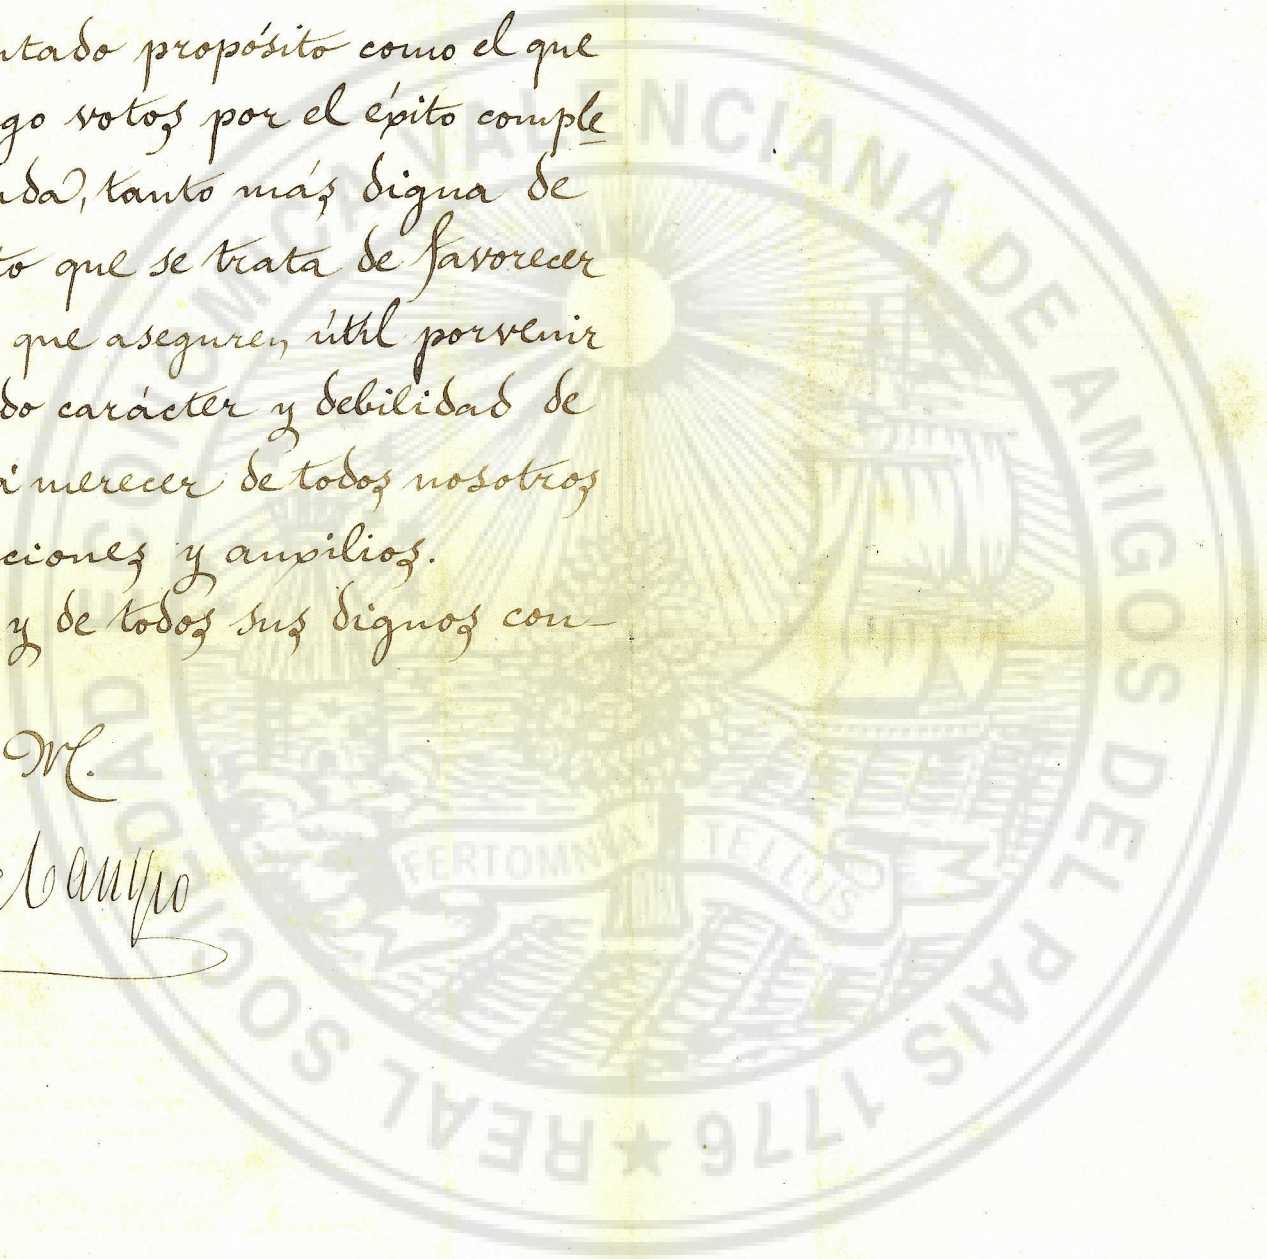 ntado propósito como el que
go votos por el éxito comple
nda, tanto más digna de
to que se trata de favorecer
que aseguren útil porvenir
do carácter y debilidad de
á merecer de todos nosotros
ciones y auxilios.
y de todos sus dignos con-
M.
REAL SOCIEDAD ECONOMICA VALENCIANA DE AMIGOS DEL PAIS 1776
FERT OMNIA TELLUS